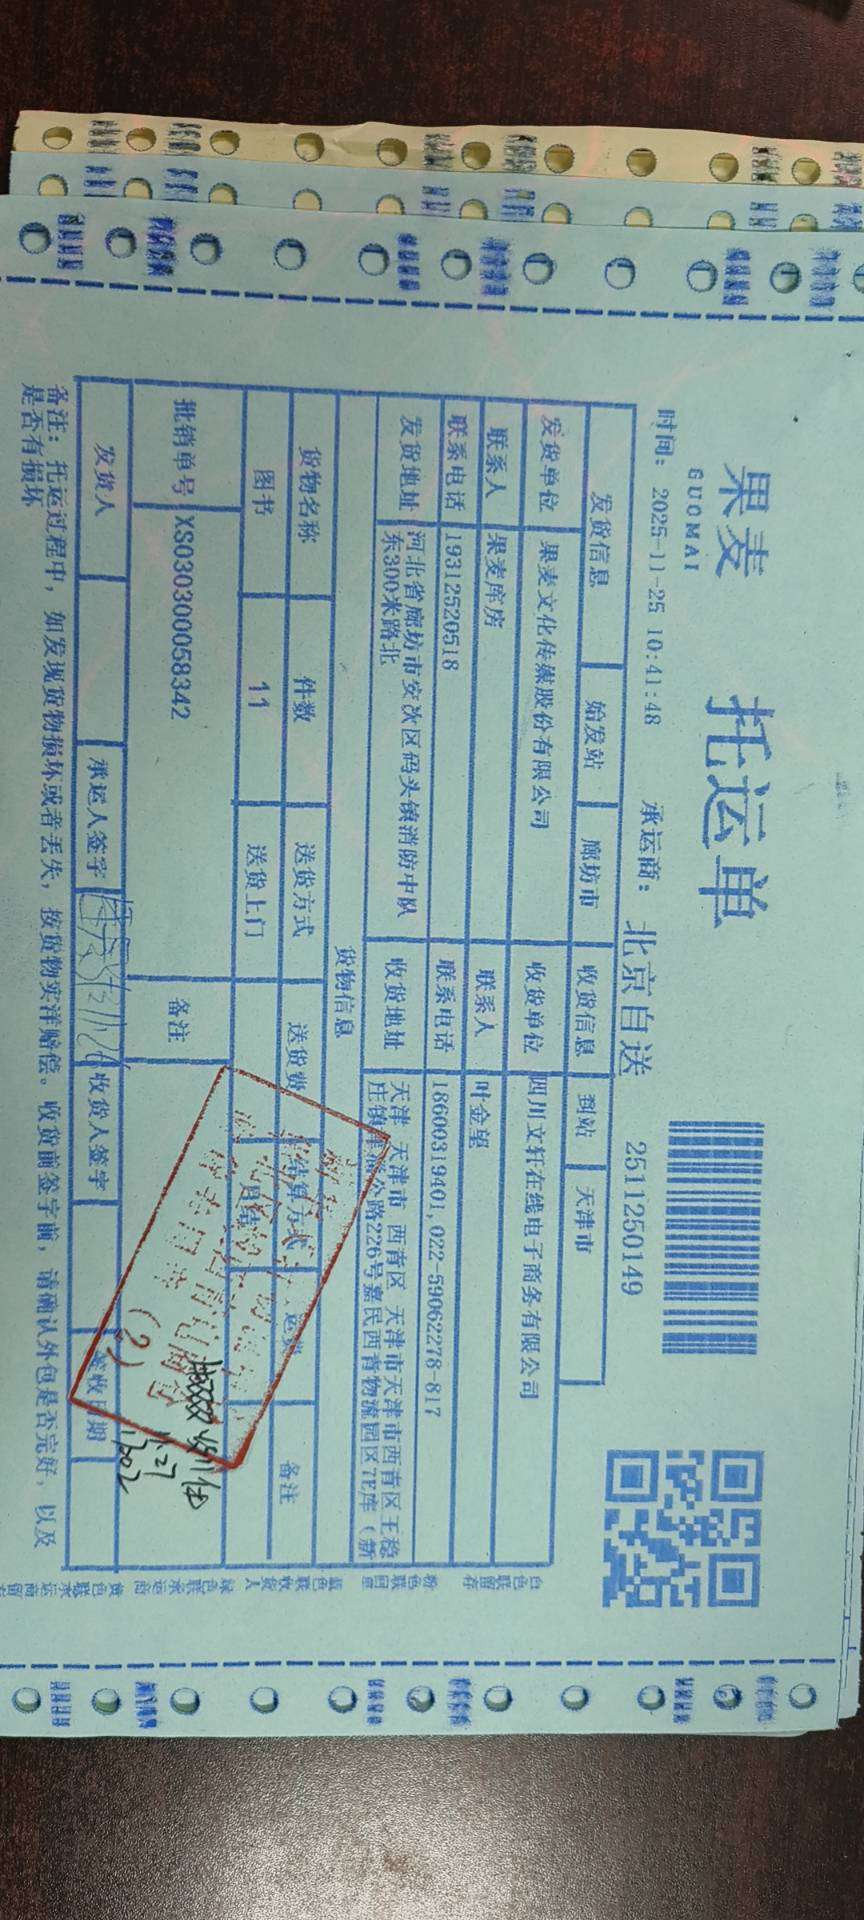 果麦
GUOMAI
托运单
时间: 2025-11-25 10:41:48 承运商: 北京自送 2511250149
发货信息 始发站 廊坊市 收货信息 到站 天津市
发货单位 果麦文化传媒股份有限公司 收货单位 四川文轩在线电子商务有限公司
联系人 果麦库房 联系人 叶金望
联系电话 19312520518 联系电话 18600319401,022-59062278-817
发货地址 河北省廊坊市安次区码头镇消防中队
东300米路北
收货地址 天津 天津市 西青区 天津市天津市西青区王稳
庄镇 公路226号嘉民西青物流园区7E库(新
货物信息
货物名称 件数 送货方式 送货费 结算方式 运费 备注
图书 11 送货上门 月结
批销单号 XS030300058342 备注
(2)
11.27
发货人 承运人签字 收货人签字 签收日期
备注: 托运过程中, 如发现货物损坏或者丢失, 按货物实洋赔偿。收货前签字前, 请确认外包是否完好, 以及
是否有损坏
白色联留存 粉色联回单 蓝色联收货人 绿色联承运商 黄色联承运商留存